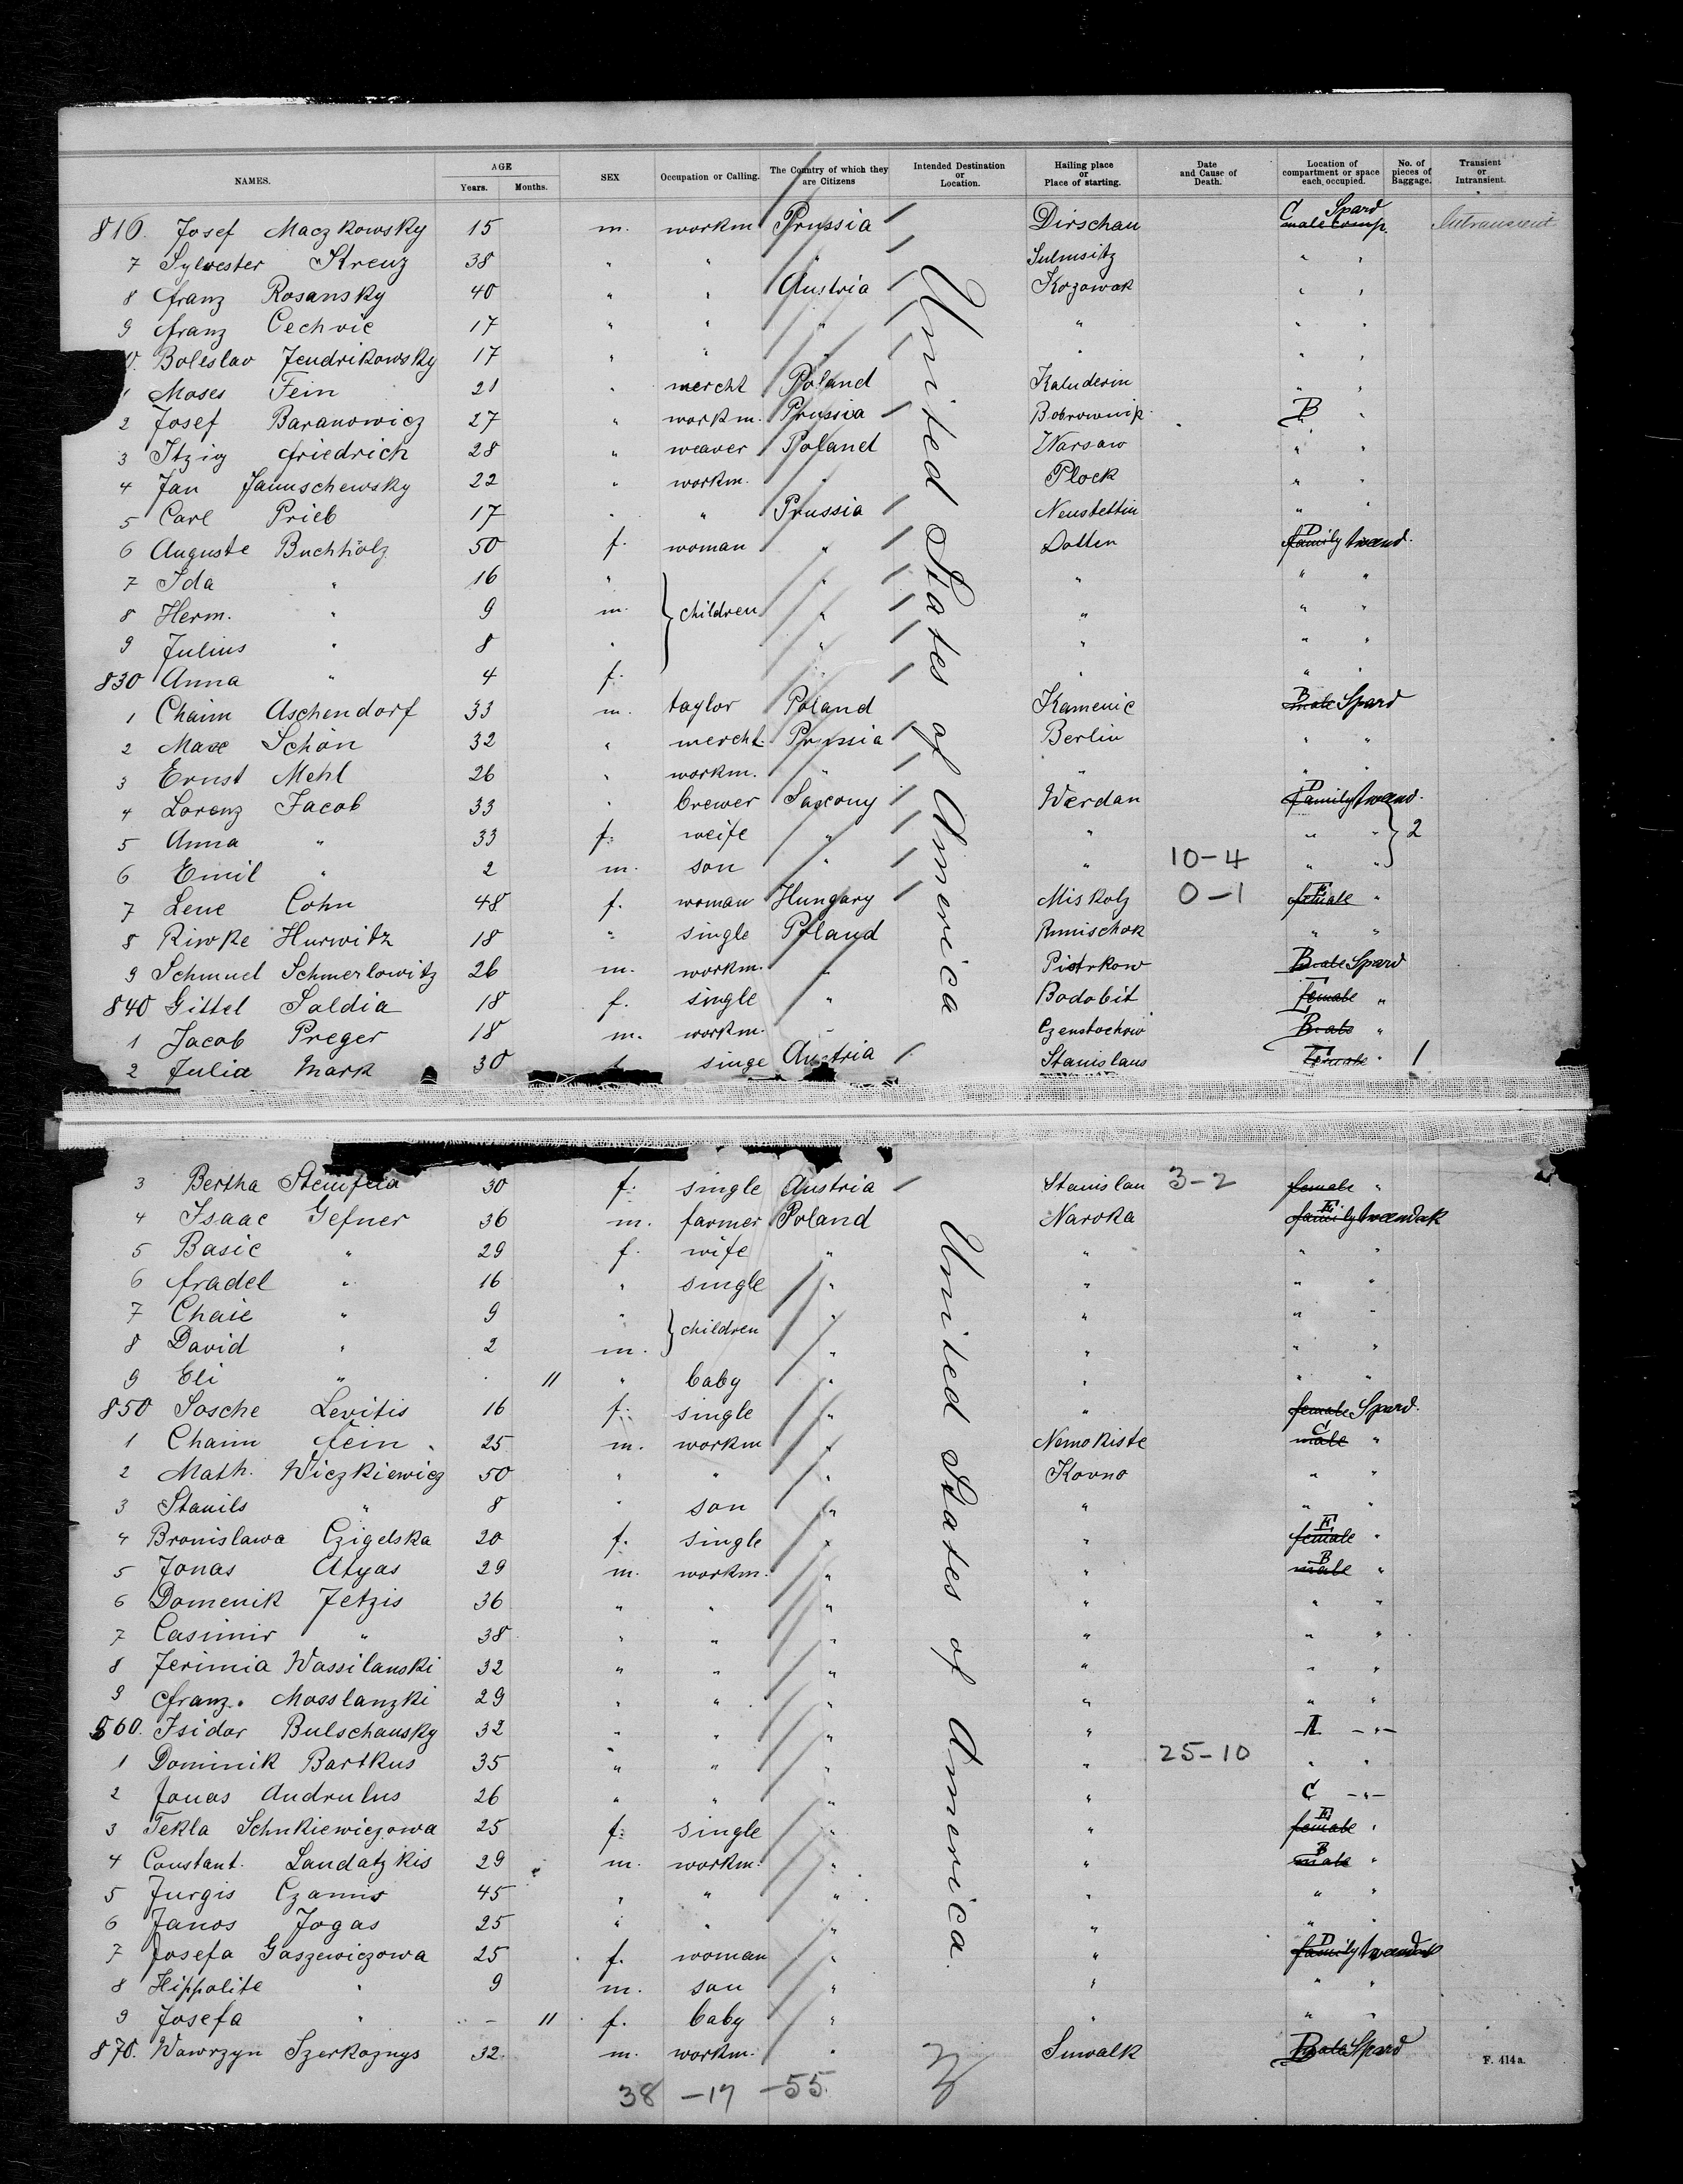 NAMES. AGE Years. Months. SEX Occupation or Calling. The Country of which they are Citizens Intended Destination or Location. Hailing place or Place of starting. Date and Cause of Death. Location of compartment or space each occupied. No. of pieces of Baggage. Transient or Intransient.
816. Josef Maczkowsky 15 m. workm Prussia Dirschau C Spard male comp. Intransient
7 Sylvester Kreuz 38 " " " Sulmsitz " "
8 Franz Rosansky 40 " " Austria Kozowak " "
9 Franz Cechvic 17 " " " " " "
0. Boleslav Jendrikowsky 17 " " " " " "
1 Moses Fein 21 " mercht Poland Kaluderin " "
2 Josef Baranowicz 27 " workm. Prussia Bobrownik B "
3 Itzig Friedrich 28 " weaver Poland Warsaw " "
4 Jan Januschewsky 22 " workm. " Plock " "
5 Carl Prieb 17 " " Prussia Neustettin " "
6 Auguste Buchholz 50 f. woman " Dolten D family twend.
7 Ida " 16 " " " " "
8 Herm. " 9 m. children " " " "
9 Julius " 8 " " " " "
830 Anna " 4 f. " " " "
1 Chaim Aschendorf 33 m. taylor Poland Kamenic B male Spard
2 Max Schön 32 " mercht. Prussia Berlin " "
3 Ernst Mehl 26 " workm. " " " "
4 Lorenz Jacob 33 " brewer Saxony Werdan D family twend.
5 Anna " 33 f. weife " " " " 2
6 Emil " 2 m. son " " 10-4 " "
7 Lene Cohn 48 f. woman Hungary Miskolz 0-1 E female "
8 Riwke Hurwitz 18 " single Poland Rumischok " "
9 Schmuel Schmerlowitz 26 m. workm. " Piotrkow B male Spard
840 Gittel Saldia 18 f. single " Bodobit E female "
1 Jacob Preger 18 m. workm. " Czenstochow B male "
2 Julia Mark 30 f. singe Austria Stanislaus E female " 1
3 Bertha Steinfeld 30 f. single Austria Stanislau 3-2 female "
4 Isaac Gefner 36 m. farmer Poland Naroka E family tweendek
5 Basic " 29 f. wife " " " "
6 Fradel " 16 " single " " " "
7 Chaie " 9 " children " " " "
8 David " 2 m. " " " "
9 Eli " . 11 " baby " " " "
850 Sosche Levitis 16 f. single " " female Spard.
1 Chaim Fein 25 m. workm " Nemokiste C male "
2 Math. Wiczkiewicz 50 " " " Kovno " "
3 Stanils " 8 " son " " " "
4 Bronislawa Czigelska 20 f. single " " E female "
5 Jonas Atyas 29 m. workm. " " B male "
6 Domenik Jetzis 36 " " " " " "
7 Casimir " 38 " " " " " "
8 Jerimia Wassilauski 32 " " " " " "
9 Franz. Mosslanzki 29 " " " " " "
860. Isidor Bulschausky 32 " " " " A -"-
1 Dominik Bartkus 35 " " " " 25-10 " "
2 Jonas Andrulus 26 " " " " C -"-
3 Tekla Schukiewiczowa 25 f. single " " E female "
4 Constant. Landatzkis 29 m. workm. " " B male "
5 Jurgis Czamis 45 " " " " " "
6 Janos Jogas 25 " " " " " "
7 Josefa Gaszewiczowa 25 f. woman " " D family tweendek
8 Hippolite " 9 m. son " " " "
9 Josefa " - 11 f. baby " " " "
870. Wawrzyn Szerkoznys 32 m. workm. " Suwalk B male Spard
38 -17 -55
United States of America
United States of America.
F. 414 a.